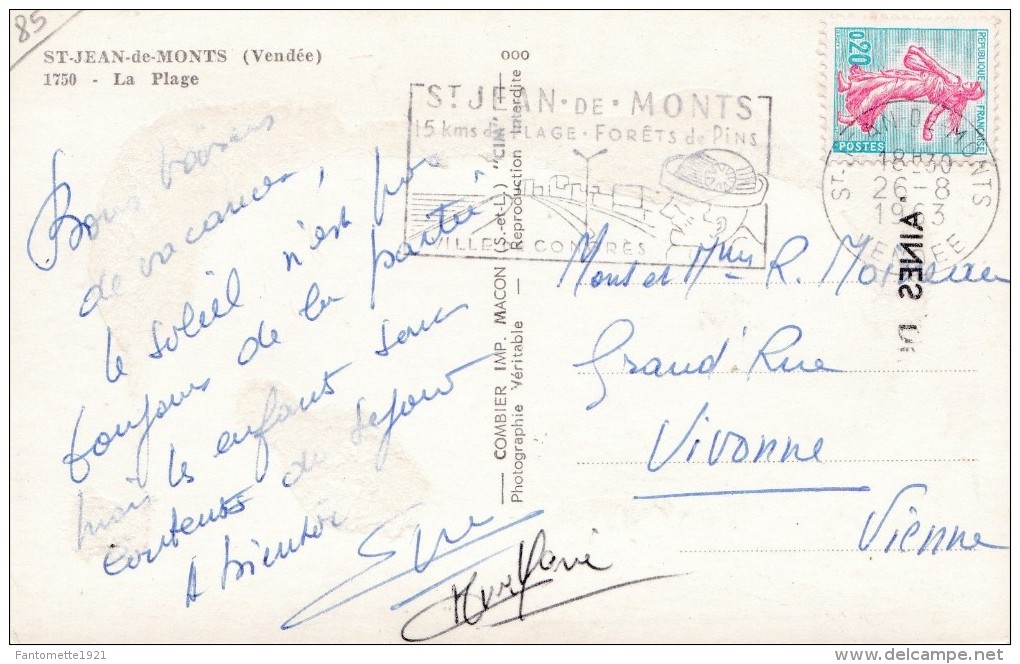 85
ST-JEAN-de-MONTS (Vendée)
1750 - La Plage
Bons baisers
de vacances,
le soleil n'est pas
toujours de la partie
mais les enfants sont
contents du séjour
A bientôt
000
COMBIER IMP. MACON (S.-et-L.) "CIM"
Photographie Véritable — Reproduction Interdite
ST JEAN·DE·MONTS
15 kms de PLAGE·FORÊTS de PINS
VILLE CONGRÈS
REPUBLIQUE FRANÇAISE
0,20
POSTES
ST-JEAN-DE-MONTS
18H30
26-8
1963
VENDEE
AINES DE
Mons et Mme R.
Grand'Rue
Vivonne
Vienne
Fantomette1921
delcampe.net